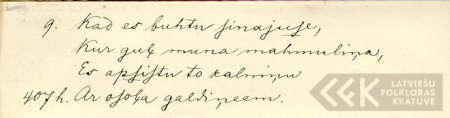 9. Kad es buhtu sinajuse,
Kur guļ muna mahmuliņa,
Es apsistu to kalniņu
407 h. Ar osola galdiņeem.
LATVIEŠU
FOLKLORAS
KRĀTUVE